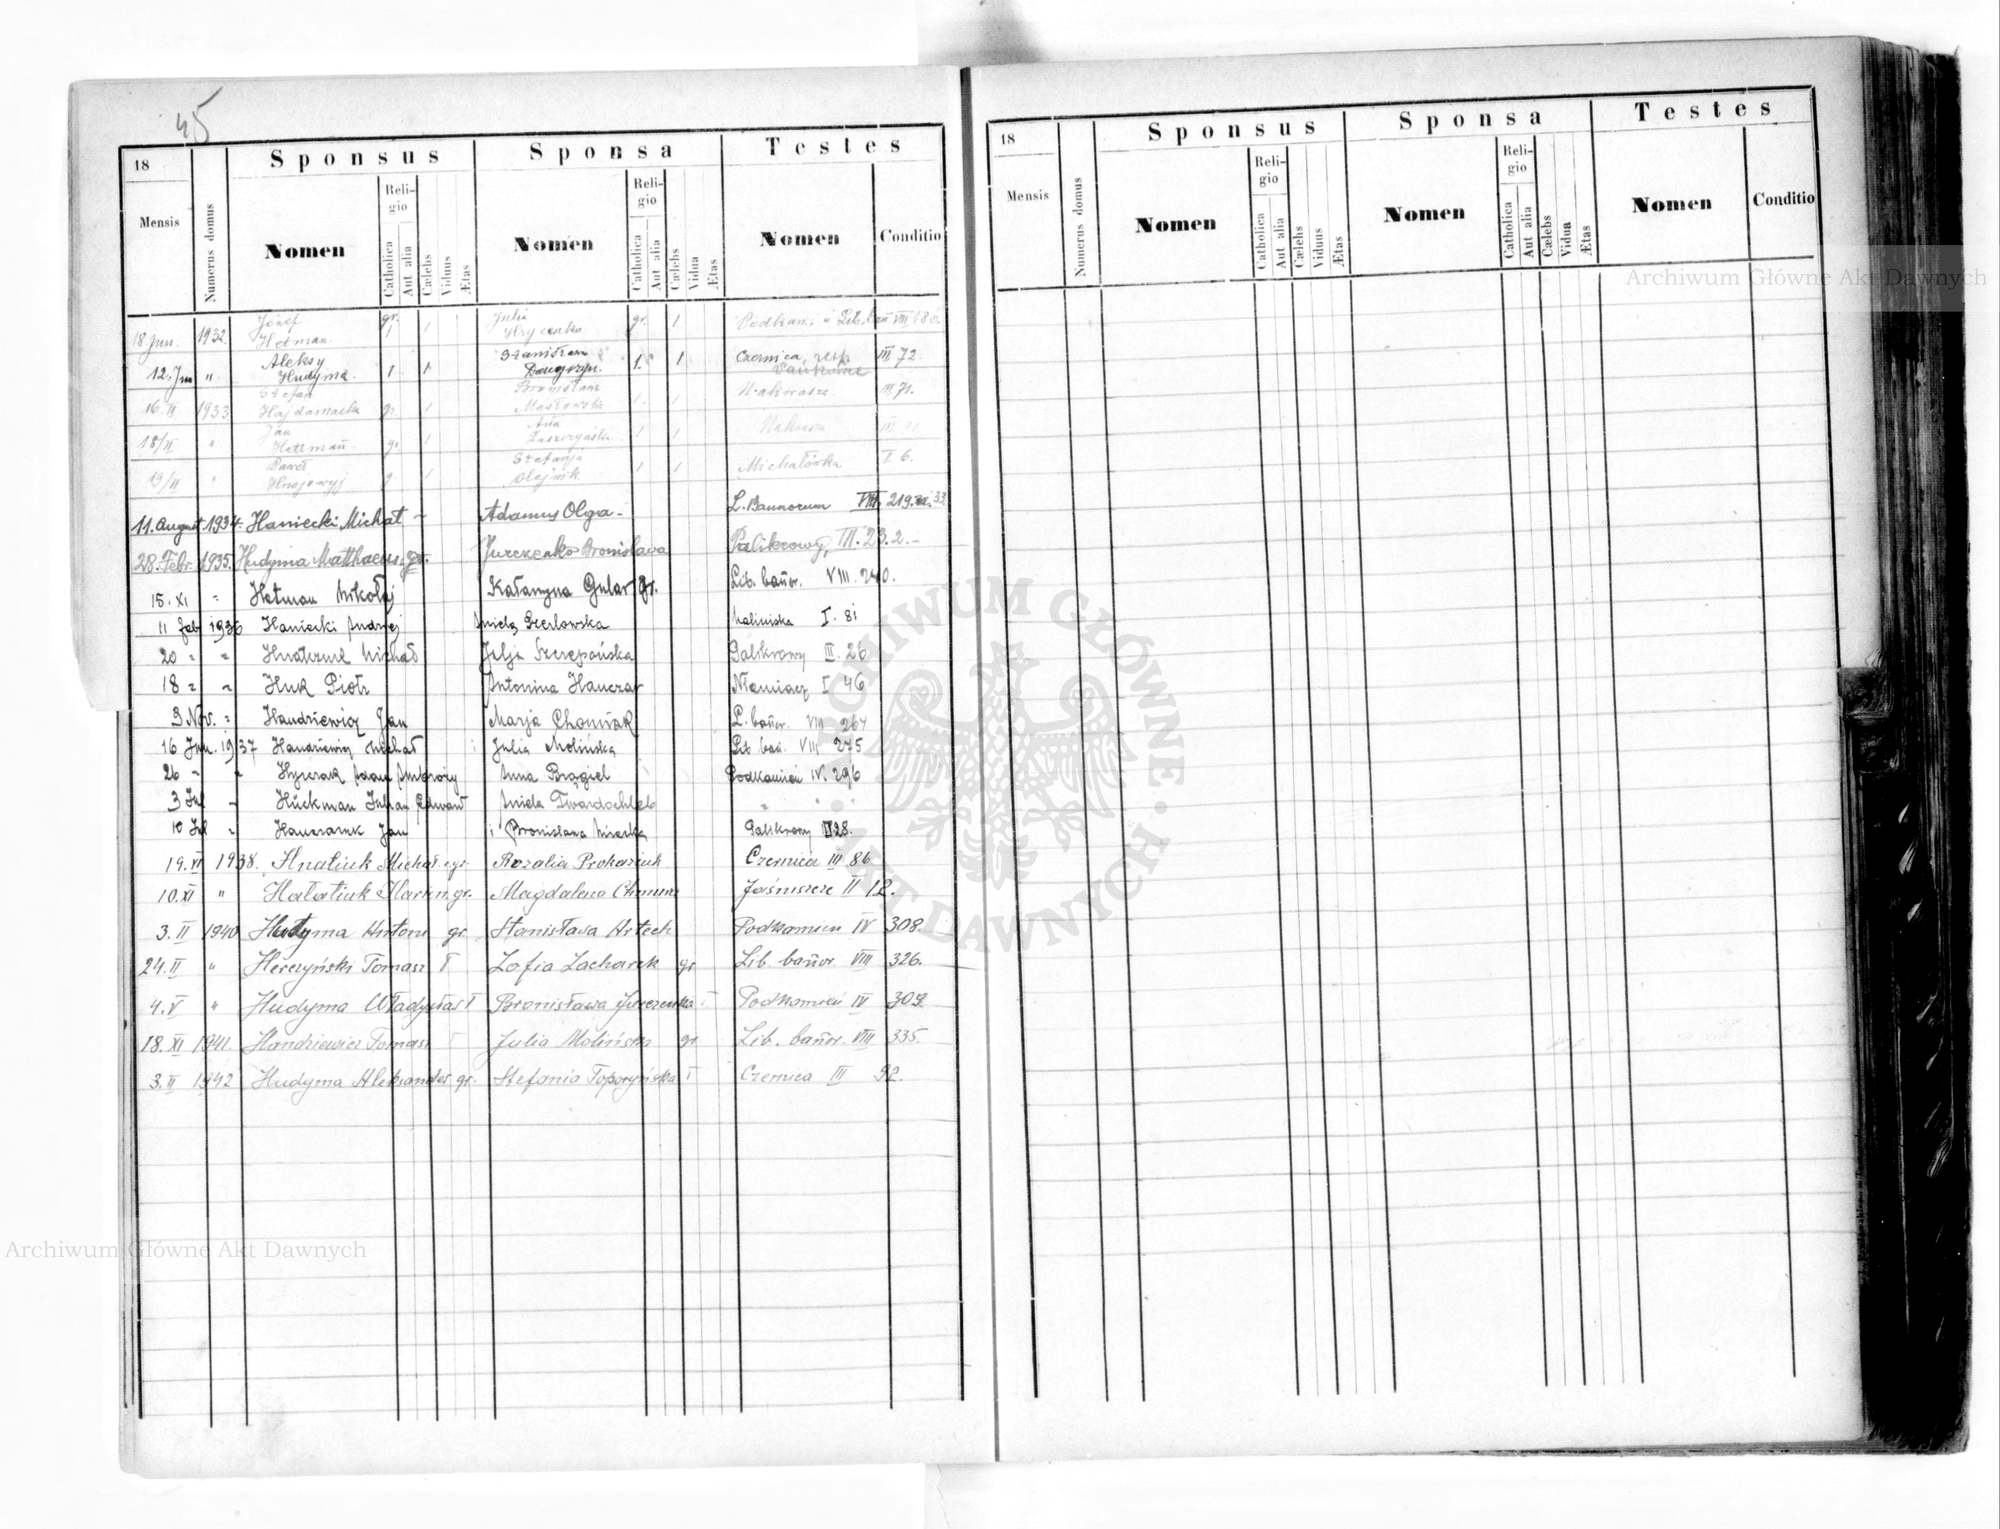 45
18 Sponsus Sponsa Testes
Mensis Numerus domus Nomen Religio Catholica Aut alia Cælebs Viduus Ætas Nomen Religio Catholica Aut alia Cælebs Vidua Ætas Nomen Conditio
18 Jun. 1932. Józef Hetman gr. 1 1 Julia Hrycenko gr. 1 Lib. bañ VIII
12. Jun " Aleksy Hudyma. 1 1 Stanisława 1. 1 Czernica, III 72.
16. II 1933 Stefan Hajdamacha gr. 1 Bronisława Masłowska 1. 1 III 71.
18/II " Jan Hetmañ gr. 1 1 1
19/II " Paweł 1 Stefanja Olejnik 1 1 Michałówka I 6.
11. August. 1934. Haniecki Michał – Adamus Olga – L. Bannorum VIII. 219.
28. Febr. 1935. Hudyma Matthaeus. gr. Jurczenko Bronisława Palikrowy, III. 23.2. –
15. XI " Hetman Mikołaj Katarzyna gr. Lib. bañor. VIII. 240.
11 feb 1936 Haniecki Andrzej Aniela I. 81
20 " " Michał Szczepańska Palikrowy III. 26
18 " " Huk Piotr Antonina Hanczar I 46
3 Nov. " Handziewicz Jan Marja Chomiak L. bañor. VIII 267
16 Jun. 1937 Handziewicz Michał Julia Molińska Lib. bañ. VIII 275
26 " " Adam Ambroży Anna Brągiel Podkamień IV. 296
3 Jul " Huckman Julian Edward Aniela Twardochleb " " "
10 Jul " Jan i Bronisława Palikrowy 28.
19. VI 1938. Hnatiuk Michał gr. Rozalia Prokaziuk Czernica III 86
10. XI " Hałatiuk gr. Magdalena Jaśniszcze II 12.
3. II 1940 Hudyma Antoni gr. Stanisława Artech Podkamień IV 308.
24. II " Herczyński Tomasz Zofia Zacharek gr Lib. bañor. VIII 326.
4. V " Hudyma Władysław Bronisława Jurczenka Podkamień IV 309.
18. XI 1941. Handziewicz Tomasz Julia Molińska gr Lib. bañor. VIII 335.
3. II 1942 Hudyma Aleksander gr. Stefania Toporyńska Czernica III 92.
18 Sponsus Sponsa Testes
Mensis Numerus domus Nomen Religio Catholica Aut alia Cælebs Viduus Ætas Nomen Religio Catholica Aut alia Cælebs Vidua Ætas Nomen Conditio
Archiwum Główne Akt Dawnych
ARCHIWUM GŁÓWNE AKT DAWNYCH
Archiwum Główne Akt Dawnych